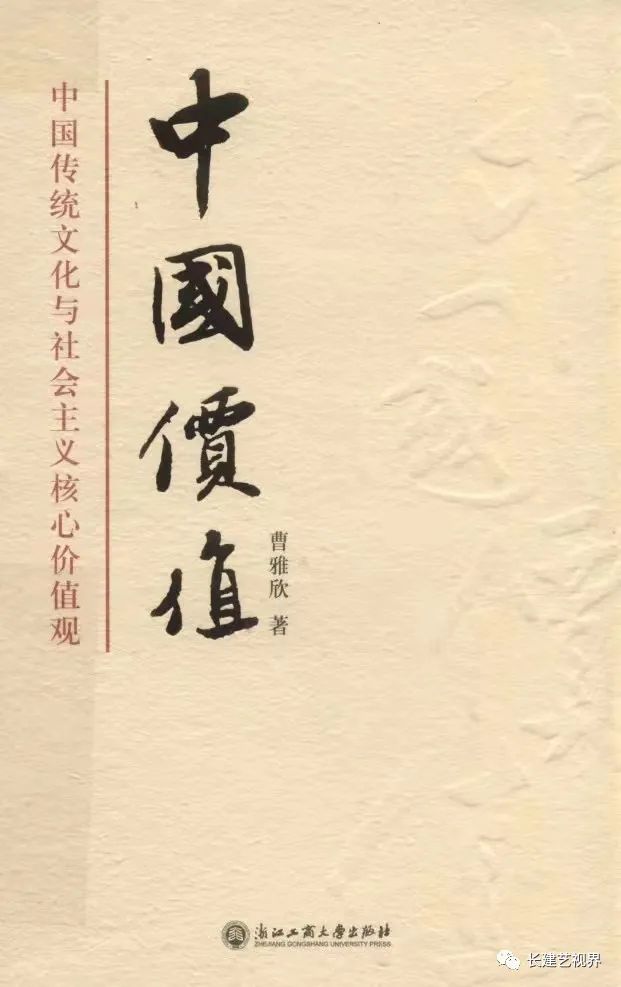 中國價值
中国传统文化与社会主义核心价值观
曹雅欣 著
浙江工商大学出版社
ZHEJIANG GONGSHANG UNIVERSITY PRESS
长建艺视界